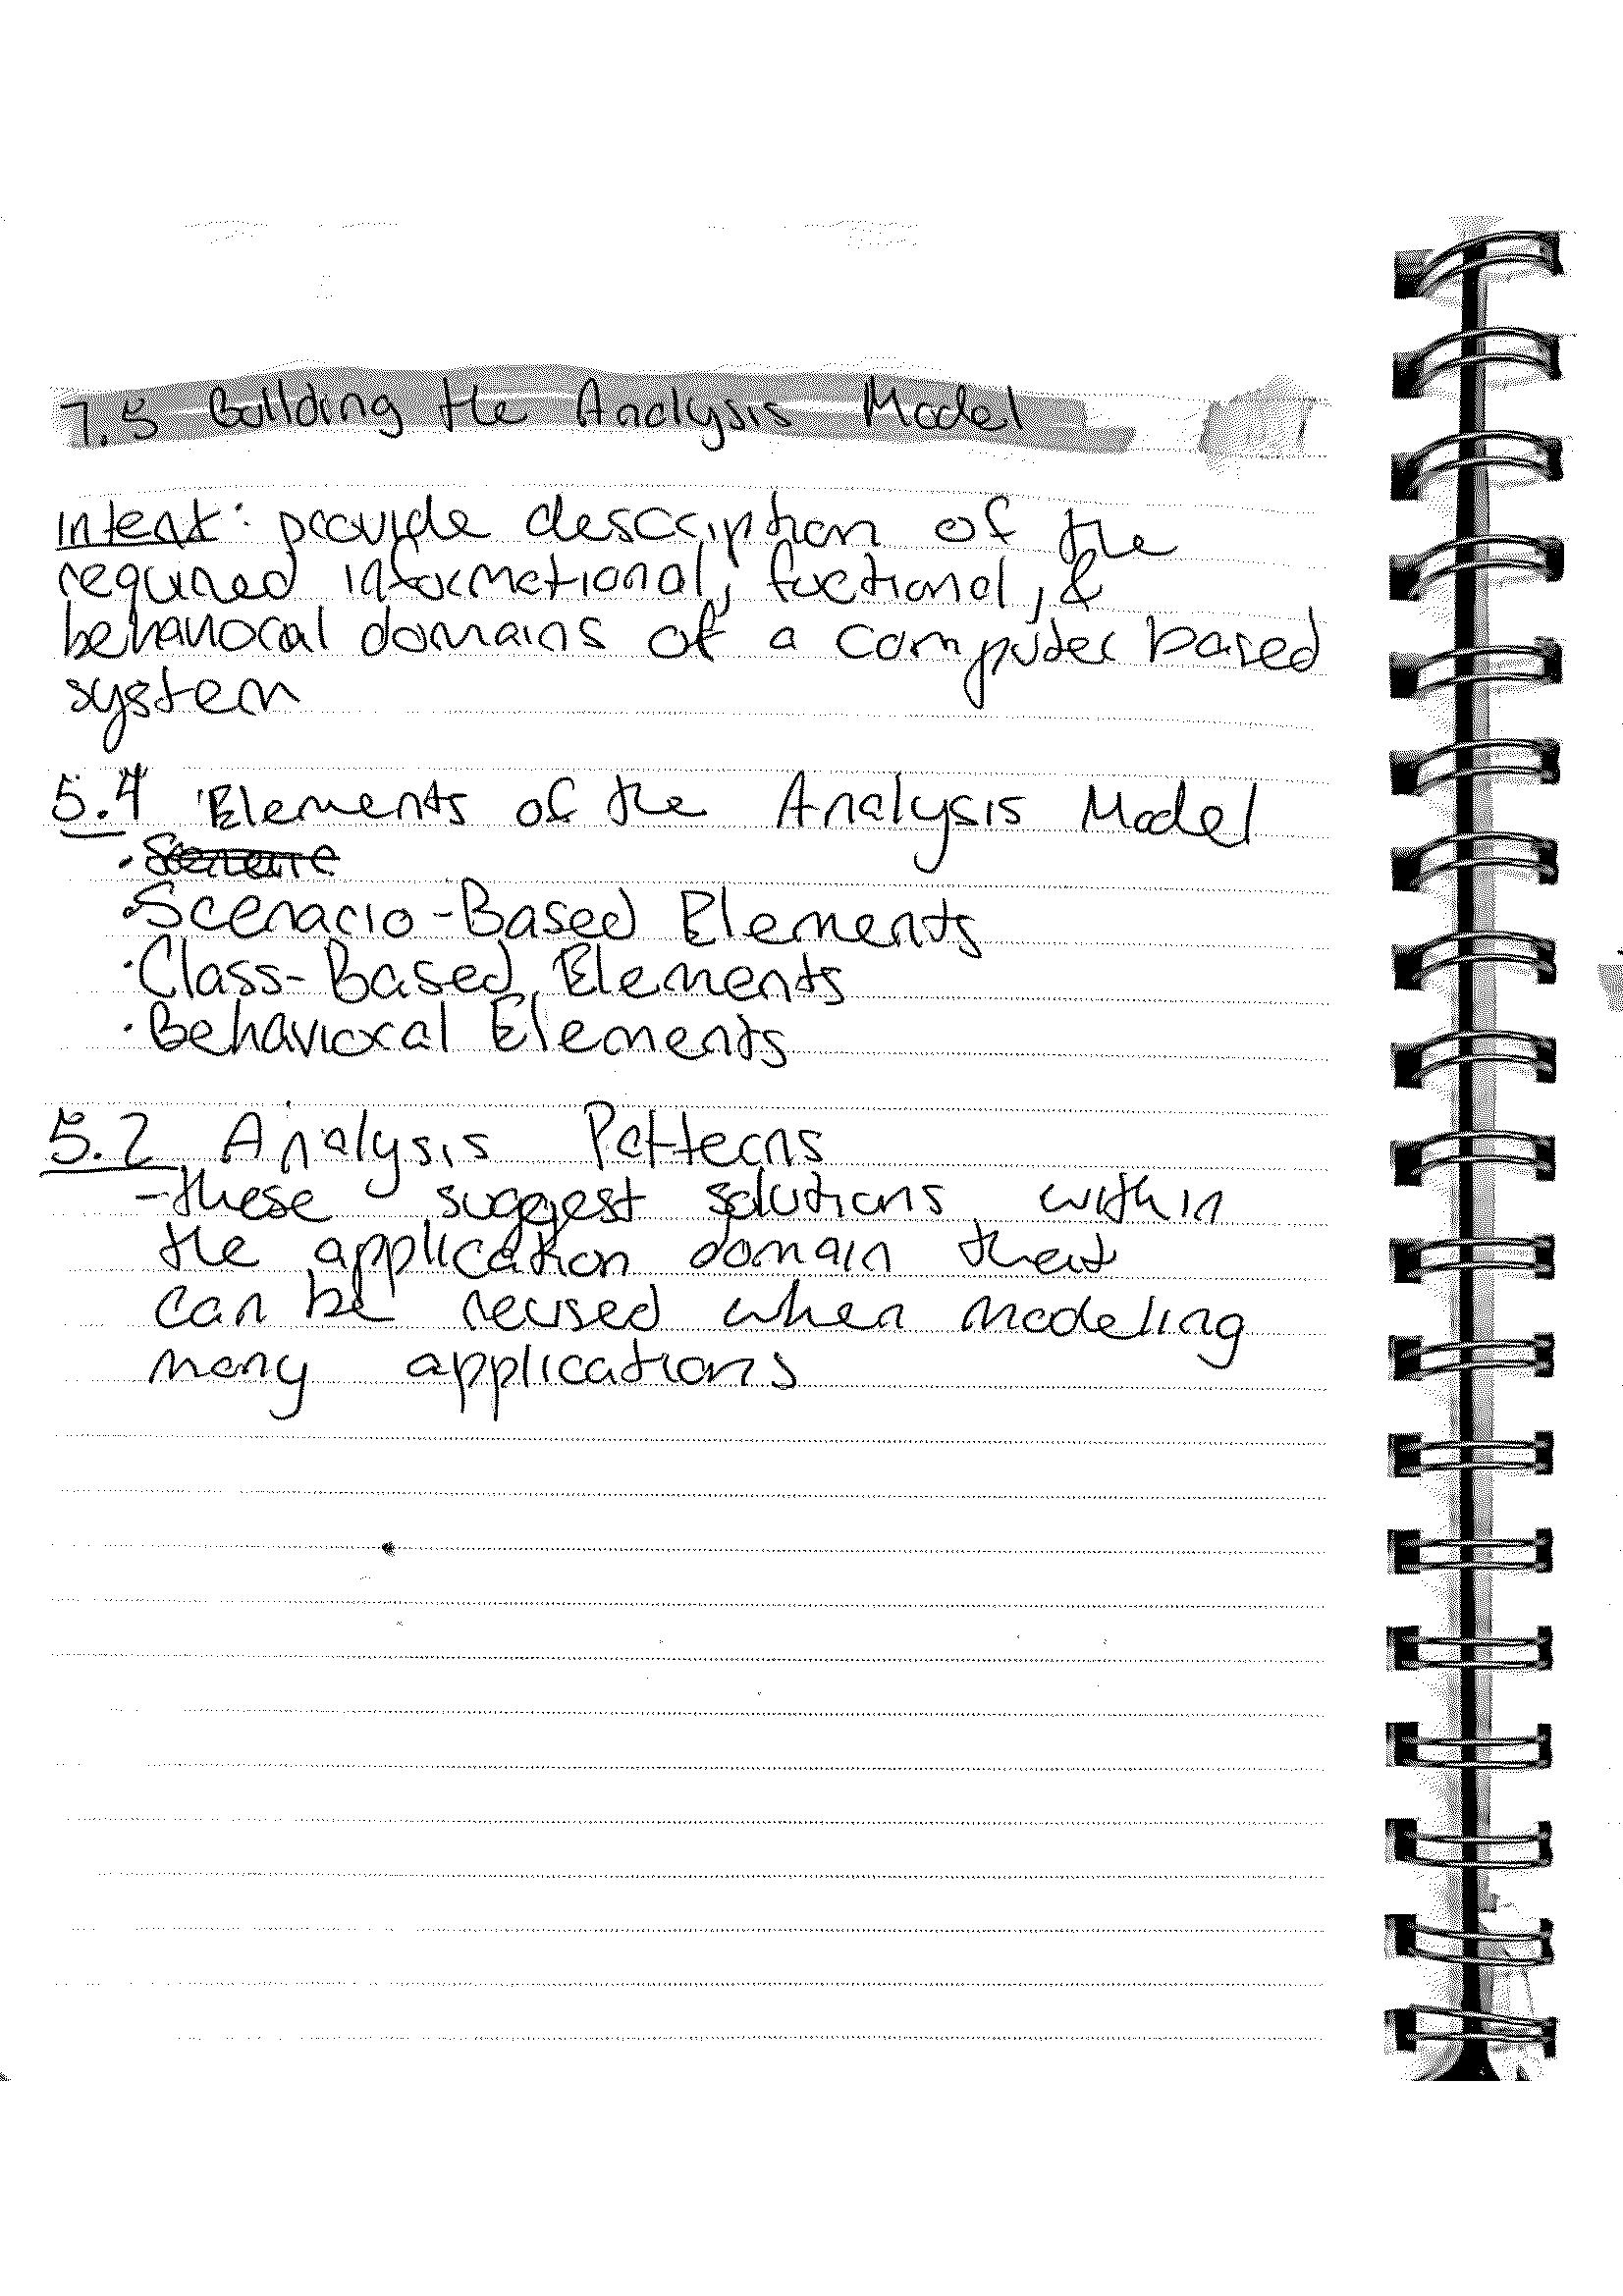 7.5 Building the Analysis Model
intent: provide description of the
required informational, fuctional, &
behavioral domains of a computer based
system
5.4 Elements of the Analysis Model
·
·Scenario-Based Elements
·Class-Based Elements
·Behavioral Elements
5.2 Analysis Patterns
-these suggest solutions within
the application domain that
can be reused when modeling
many applications